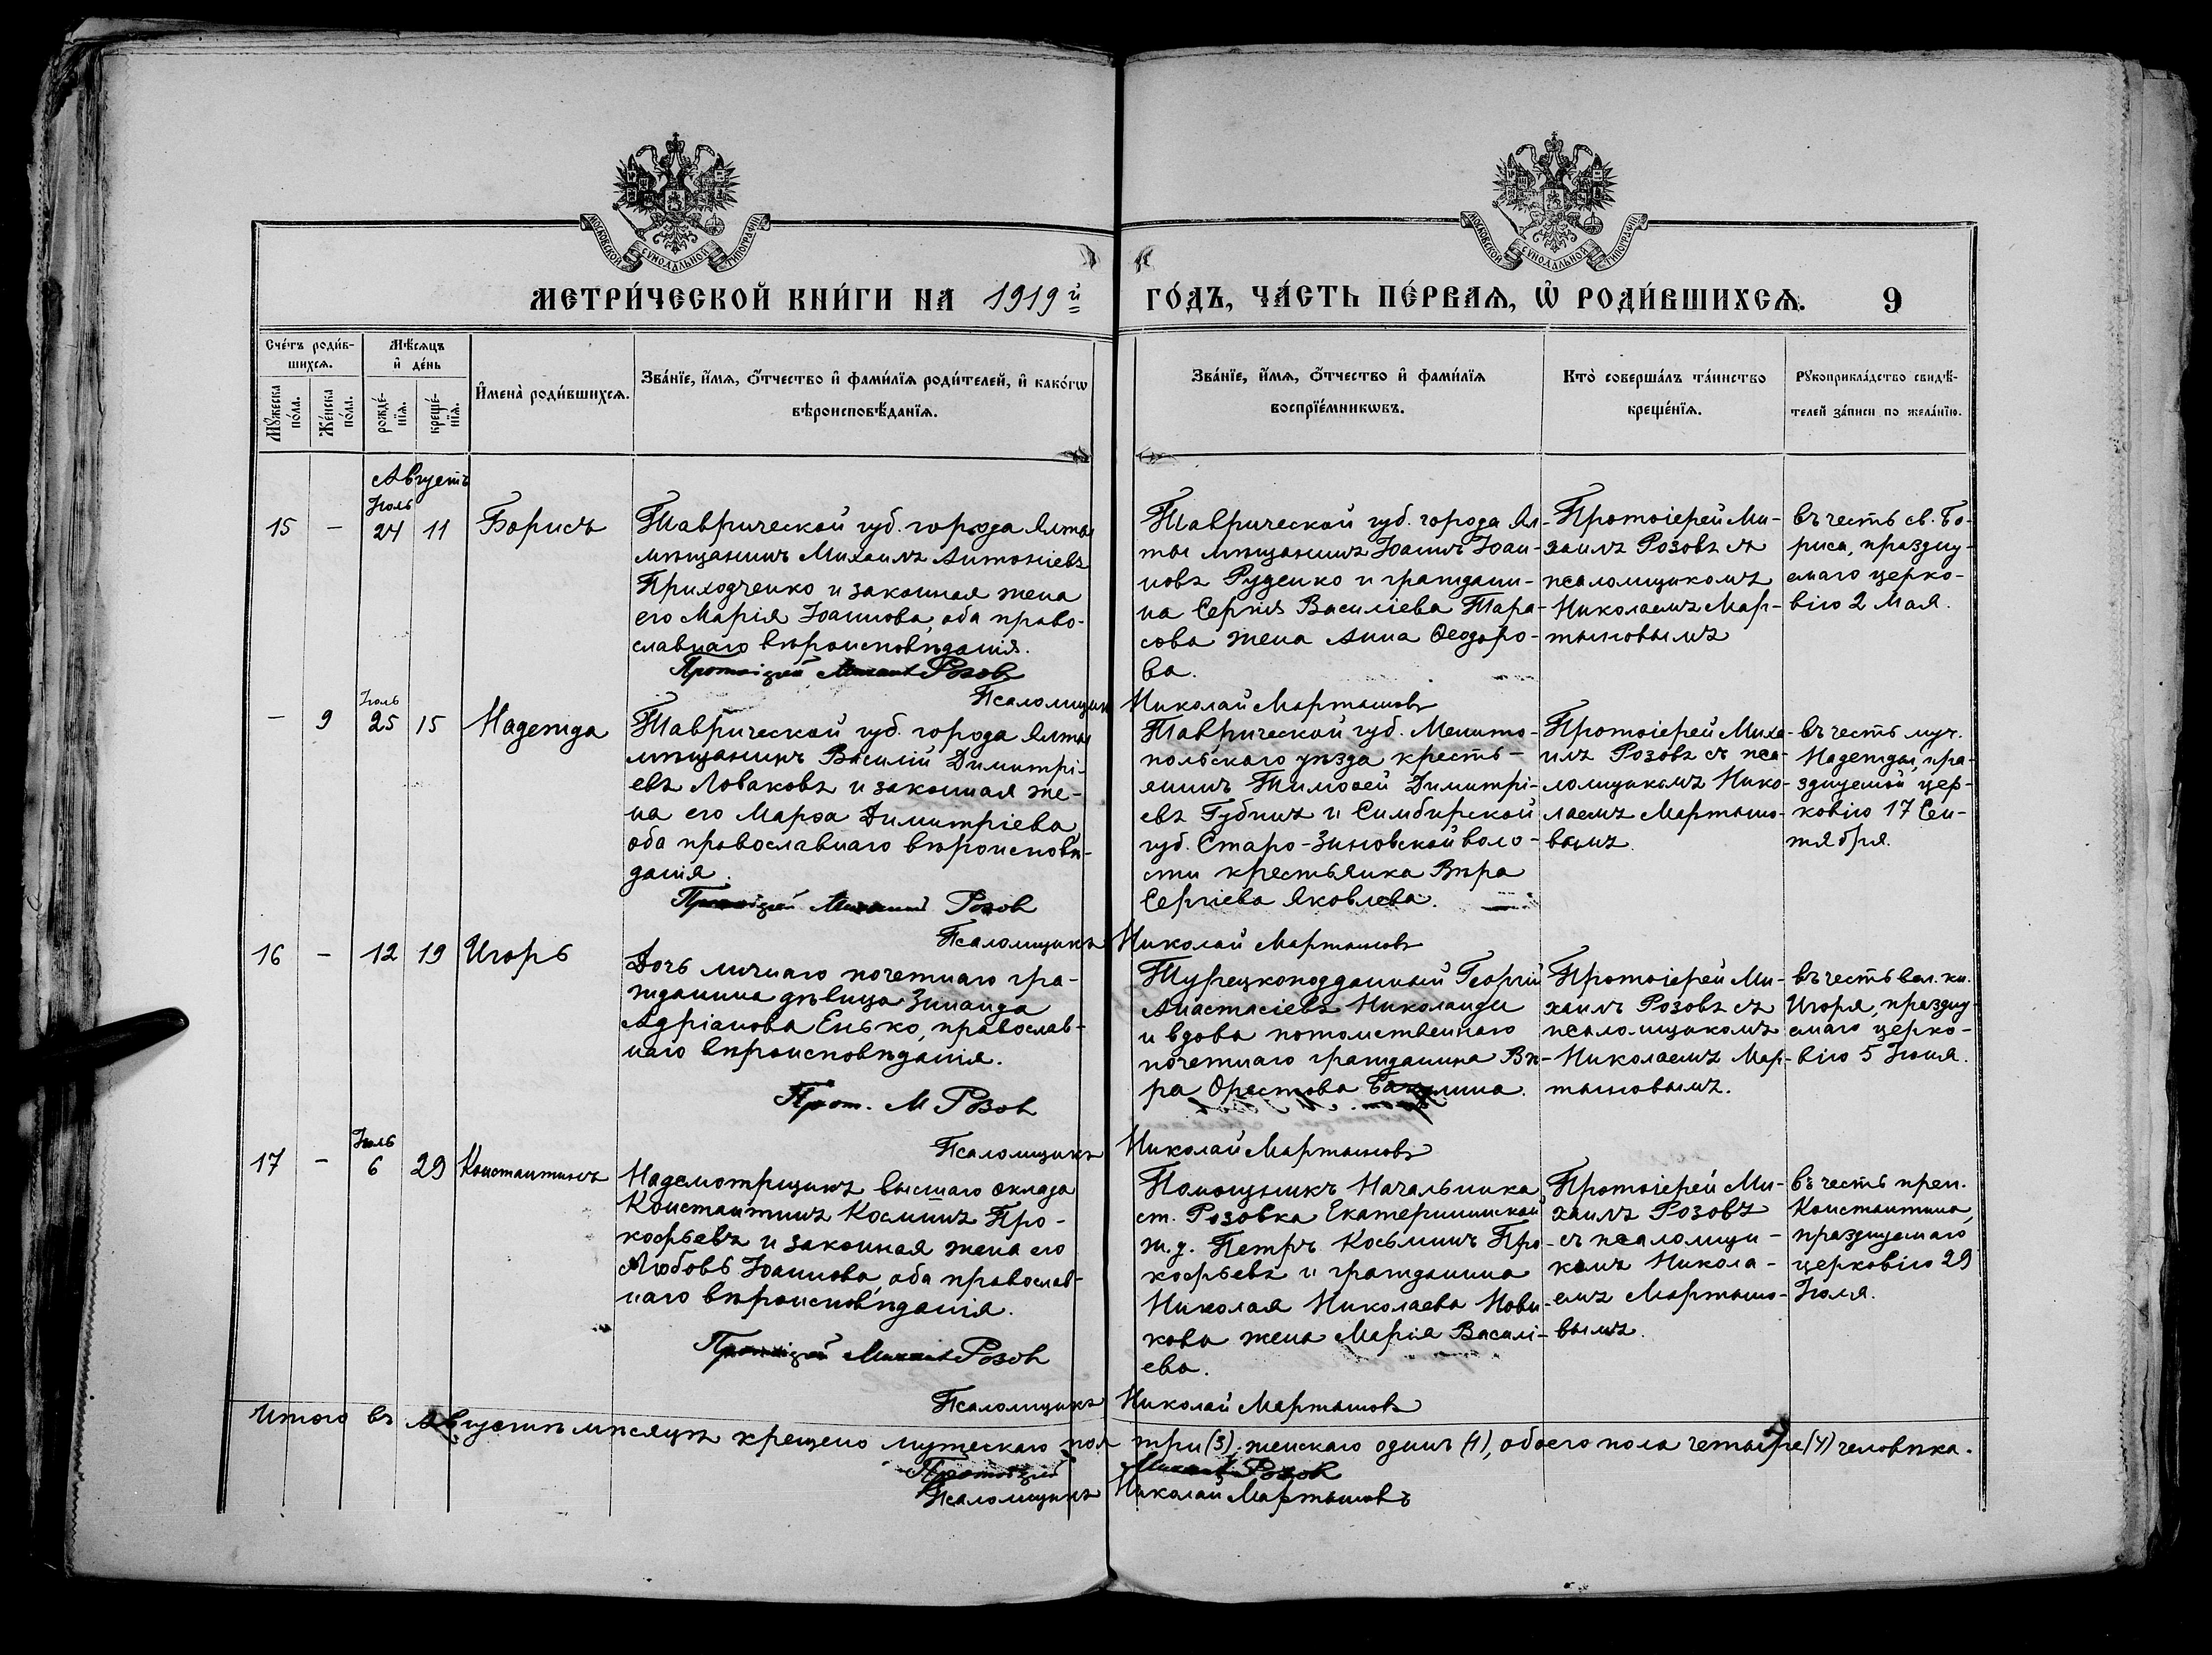 МОСКОВСКОЙ СѴНОДАЛЬНОЙ ТИПОГРАФІИ
МОСКОВСКОЙ СѴНОДАЛЬНОЙ ТИПОГРАФІИ
МЕТРИ́ЧЕСКОЙ КНИ́ГИ НА 1919й ГО́ДЪ, ЧА́СТЬ ПЕ́РВАѦ, Ѡ РОДИ́ВШИХСѦ. 9
Сче́тъ роди́в-
шихсѧ.
Мꙋ́жеска по́ла.
Же́нска по́ла.
Мѣ́сѧцъ
и҆ де́нь
рожде́-
нїѧ.
креще́-
нїѧ.
И҆мена̀ роди́вшихсѧ.
Зва́нїе, и҆́мѧ, ѻ҆́тчество и҆ фами́лїѧ роди́телей, и҆ како́гѡ
вѣроисповѣ́данїѧ.
Зва́нїе, и҆́мѧ, ѻ҆́тчество и҆ фами́лїѧ
воспрїе́мникѡвъ.
Кто̀ соверша́лъ та́инство
креще́нїѧ.
Рꙋкоприкла́дство свидѣ́-
телей за́писи по жела́нїю.
Августъ
Іюль
15 - 24 11 Борисъ
Таврической губ. города Ялты
мѣщанинъ Михаилъ Антоніевъ
Приходченко и законная жена
его Марія Іоаннова, оба право-
славнаго вѣроисповѣданія.
Протоіерей Михаил Розов
Таврической губ. города Ял-
ты мѣщанинъ Іоаннъ Іоан-
новъ Руденко и граждани-
на Сергія Василіева Тара-
сова жена Анна Ѳеодоро-
ва.
Протоіерей Ми-
хаилъ Розовъ съ
псаломщикомъ
Николаемъ Мар-
тыновымъ
въ честь св. Бо-
риса, праздну-
емаго церко-
вію 2 Мая.
Псаломщикъ Николай Мартыновъ
Іюль
- 9 25 15 Надежда
Таврической губ. города Ялты
мѣщанинъ Василій Димитрі-
евъ Лобаковъ и законная же-
на его Марѳа Димитріева,
оба православнаго вѣроисповѣ-
данія.
Протоіерей Михаил Розов
Таврической губ. Мелито-
польскаго уѣзда кресть-
янинъ Тимоѳей Димитрі-
евъ Губинъ и Симбирской
губ. Старо-Зиновской воло-
сти крестьянка Вѣра
Сергіева Яковлева.
Протоіерей Миха-
илъ Розовъ съ пса-
ломщикомъ Нико-
лаемъ Мартыно-
вымъ
въ честь муч.
Надежды, пра-
зднуемой цер-
ковію 17 Сен-
тября.
Псаломщикъ Николай Мартыновъ
16 - 12 19 Игорь
Дочь личнаго почетнаго гра-
жданина дѣвица Зинаида
Адріанова Енько, православ-
наго вѣроисповѣданія.
Прот. М Розов
Турецкоподданный Георгій
Анастасіевъ Николаиди
и вдова потомственнаго
почетнаго гражданина Вѣ-
ра Орестова
Протоіерей Ми-
хаилъ Розовъ съ
псаломщикомъ
Николаемъ Мар-
тыновымъ.
въ честь вел. кн.
Игоря, праздну-
емаго церко-
вію 5 Іюня.
Псаломщикъ Николай Мартыновъ
Іюль
17 - 6 29 Константинъ
Надсмотрщикъ высшаго оклада
Константинъ Косминъ Про-
кофьевъ и законная жена его
Любовь Іоаннова, оба православ-
наго вѣроисповѣданія.
Протоіерей Михаил Розов
Помощникъ Начальника
ст. Розовка Екатерининской
ж.д. Петръ Косьминъ Про-
кофьевъ и гражданина
Николая Николаева Нови-
кова жена Марія Василі-
ева.
Протоіерей Ми-
хаилъ Розовъ
съ псаломщи-
комъ Никола-
емъ Мартыно-
вымъ.
въ честь преп.
Константина,
празднуемаго
церковію 29
Іюля.
Псаломщикъ Николай Мартыновъ
Итого въ Августѣ мѣсяцѣ крещено мужескаго пол три (3), женскаго одинъ (1), обоего пола четыре (4) человѣка.
Протоіерей Михаил Розов
Псаломщикъ Николай Мартыновъ